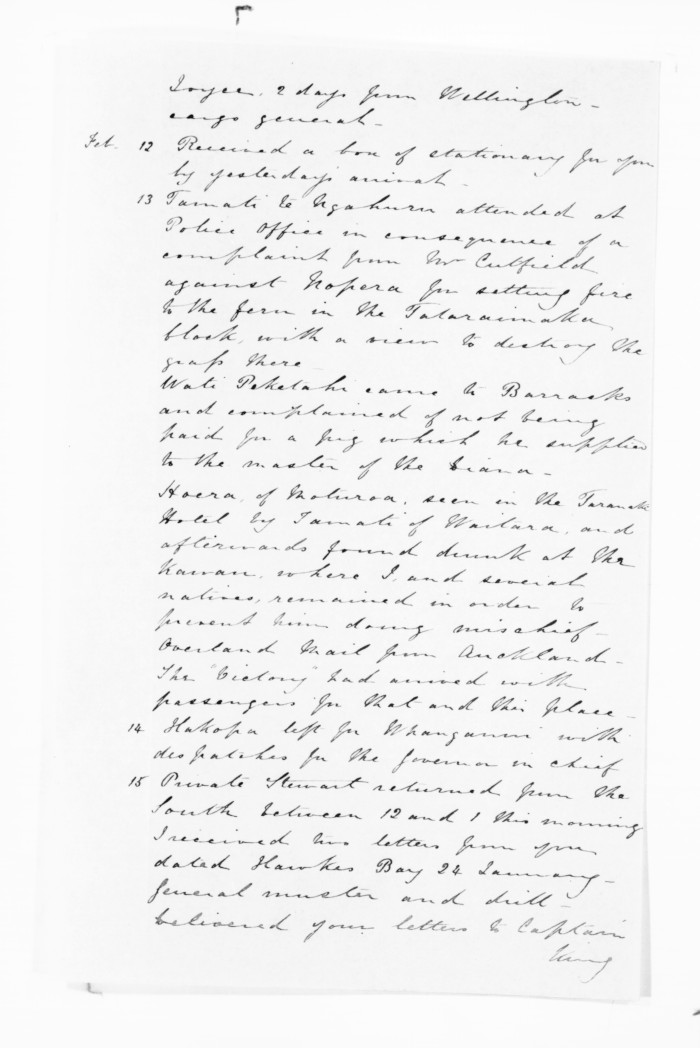 Joyce. 2 days from Wellington -
cargo general -
Feb. 12 Received a box of stationary for you
by yesterday's arrival -
13 Tamati te Ngahuru attended at
Police Office in consequence of a
complaint from Mr Cutfield
against Nopera for setting fire
to the fern in the Tataraimaka
block, with a view to destroy the
grass there -
Wati Peketahi came to Barracks
and complained of not being
paid for a pig which he supplied
to the master of the Diana -
Hoera, of Moturoa, seen in the Taranaki
Hotel by Tamati of Waitara, and
afterwards found drunk at the
Kawau, where I, and several
natives, remained in order to
prevent him doing mischief -
Overland Mail from Auckland -
The "Victory" had arrived with
passengers for that and this place -
14 Hakopa left for Whanganui with
despatches for the Governor in chief
15 Private Stewart returned from the
South between 12 and 1 this morning
I received two letters from you
dated Hawkes Bay 24 January -
General muster and drill -
Delivered your letters to Captain
King